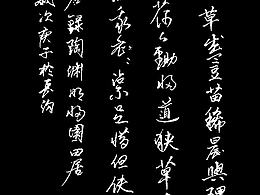 草盛豆苗稀晨興理
荷鋤歸道狹草
我衣衣沾不足惜但使
錄陶淵明歸園田居
歲次庚子於長沙